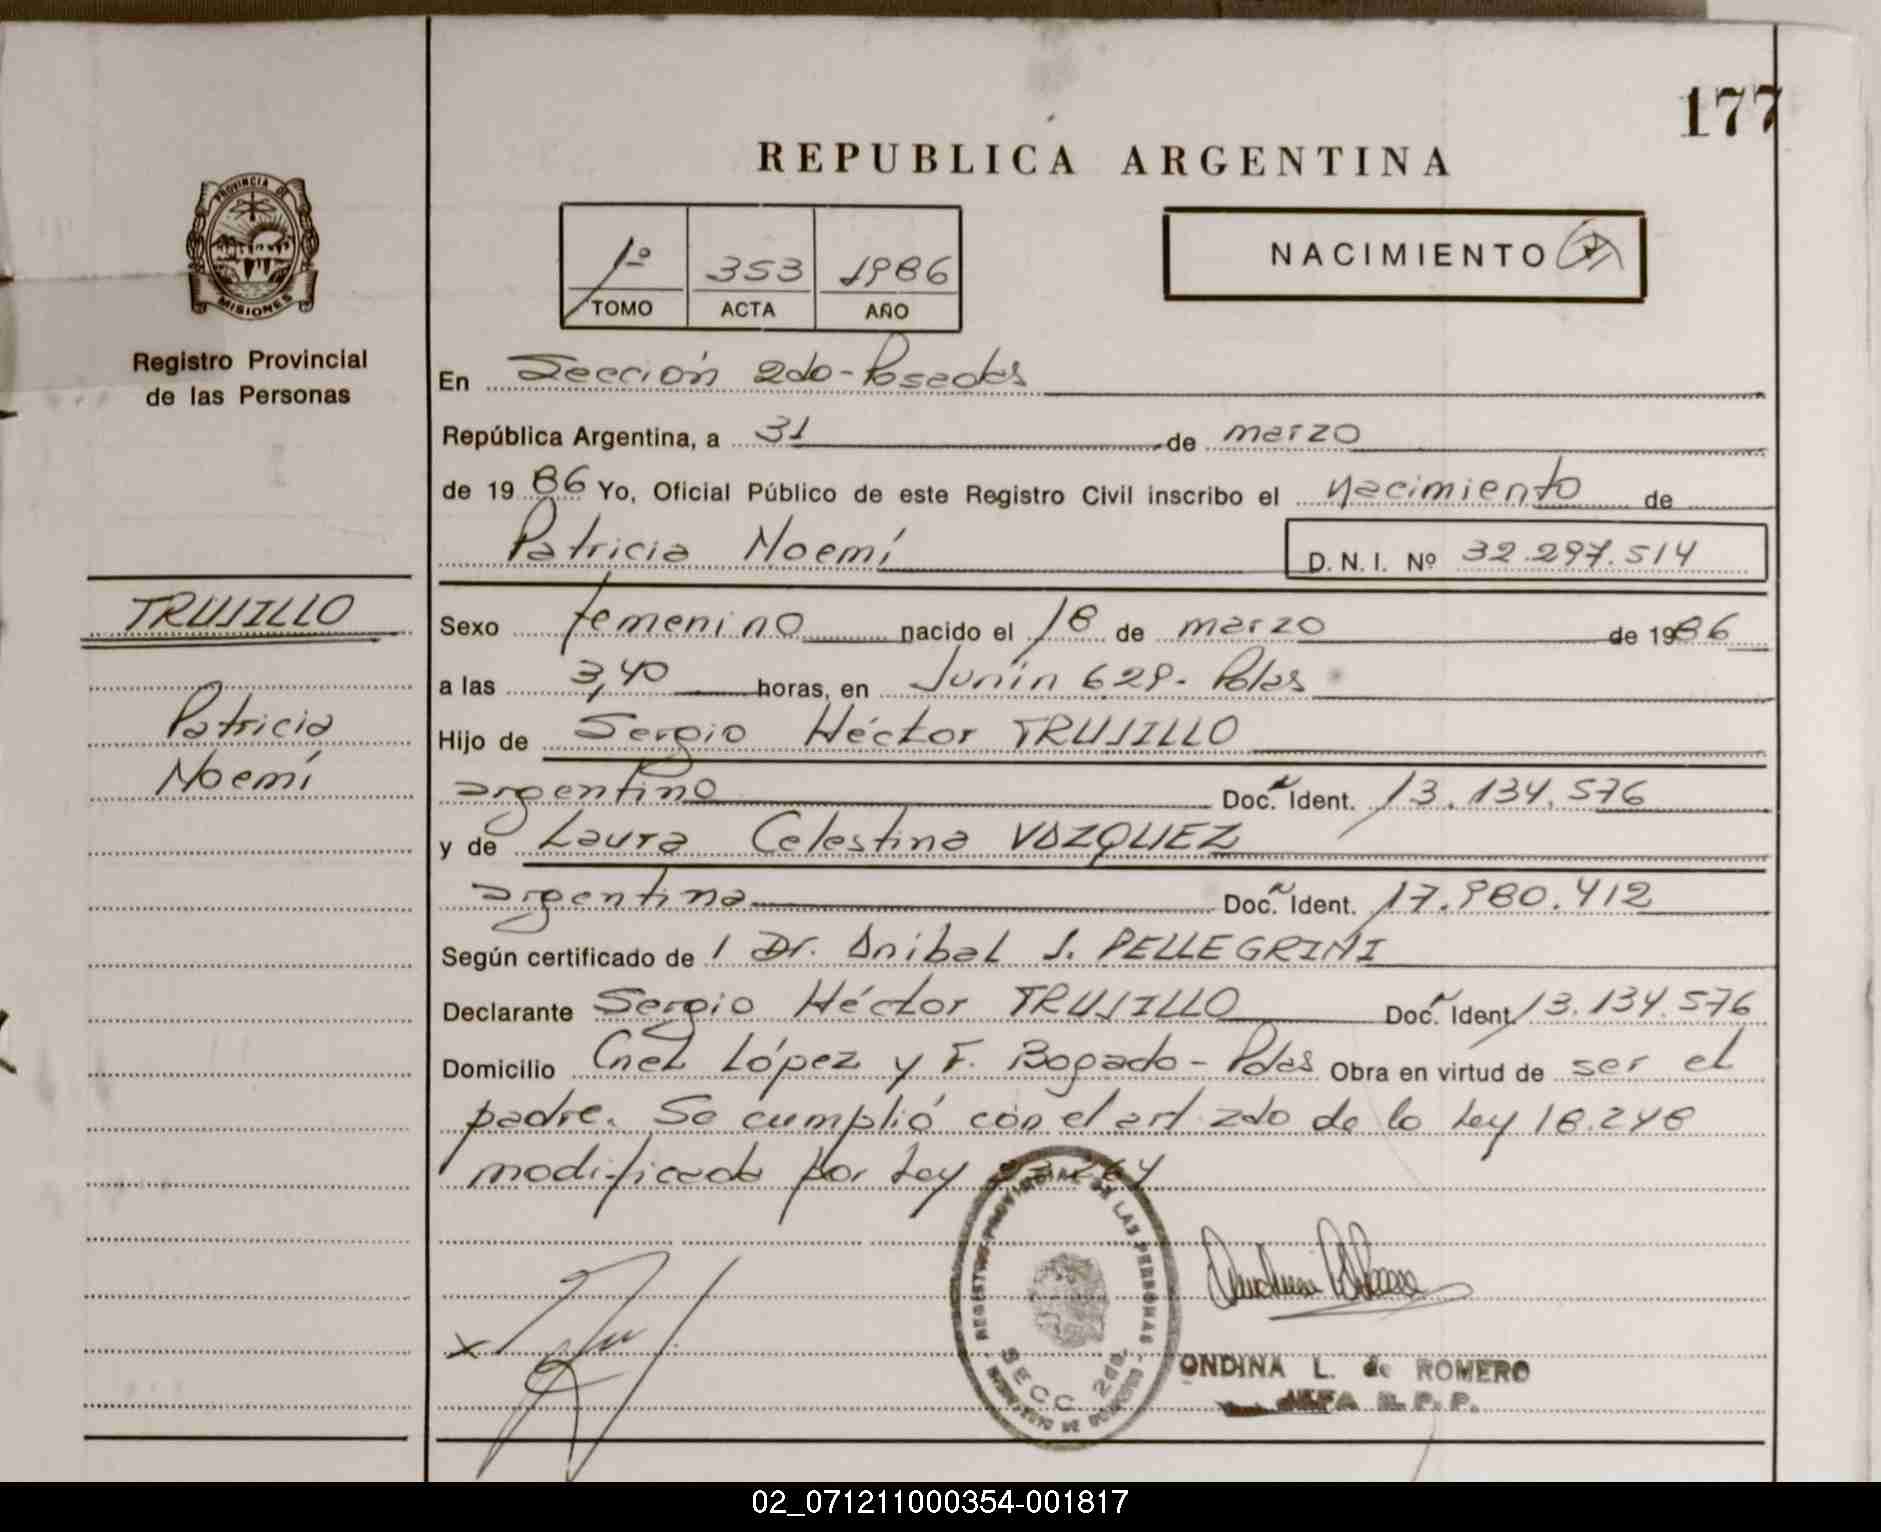 177
REPUBLICA ARGENTINA
PROVINCIA DE
MISIONES
Registro Provincial
de las Personas
1º 353 1986
TOMO ACTA AÑO
NACIMIENTO
En Sección 2da - Posadas
República Argentina, a 31 de marzo
de 1986 Yo, Oficial Público de este Registro Civil inscribo el nacimiento de
Patricia Noemí D. N. I. Nº 32.297.514
TRUJILLO
Patricia
Noemí
Sexo femenino nacido el 18 de marzo de 1986
a las 3,40 horas, en Junín 629 - Pdas
Hijo de Sergio Héctor TRUJILLO
argentino Doc. Ident. 13.134.576
y de Laura Celestina VAZQUEZ
argentina Doc. Ident. 17.980.412
Según certificado de / Dr. Anibal J. PELLEGRINI
Declarante Sergio Héctor TRUJILLO Doc. Ident. 13.134.576
Domicilio Cnel López y F. Bogado - Pdas Obra en virtud de ser el
padre. Se cumplió con el art 2do de la Ley 18.248
modificada por Ley
REGISTRO PROVINCIAL DE LAS PERSONAS
SECC 2da.
ONDINA L. de ROMERO
JEFA R. P. P.
02_071211000354-001817